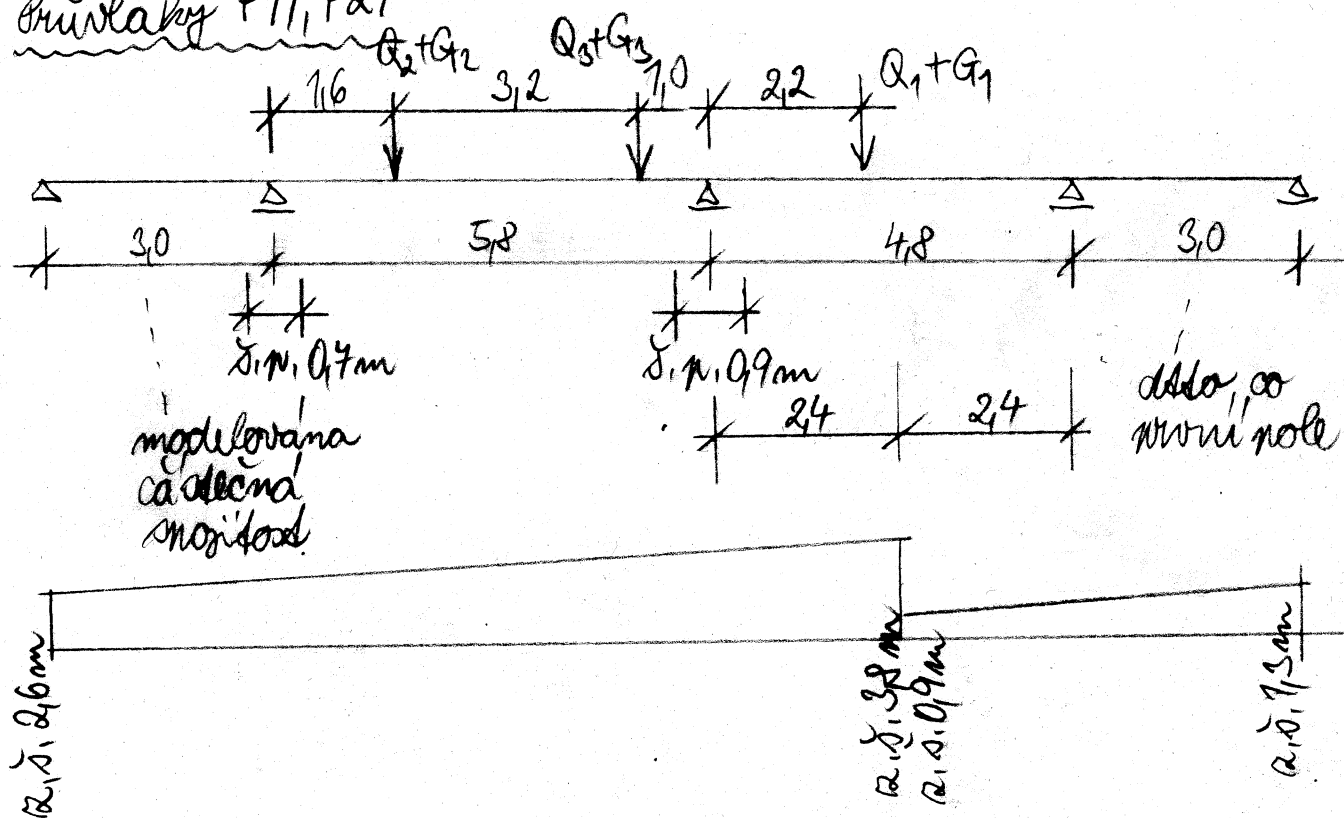 Průvlaky P11, P21
Q₂+G₂
Q₃+G₃
Q₁+G₁
1,6
3,2
1,0
2,2
3,0
5,8
4,8
3,0
š.p. 0,7m
š.p. 0,9m
modelována
částečná
spojitost.
2,4
2,4
ditto, co
první pole
z.š. 2,6m
z.š. 3,8m
z.š. 0,9m
z.š. 1,3m